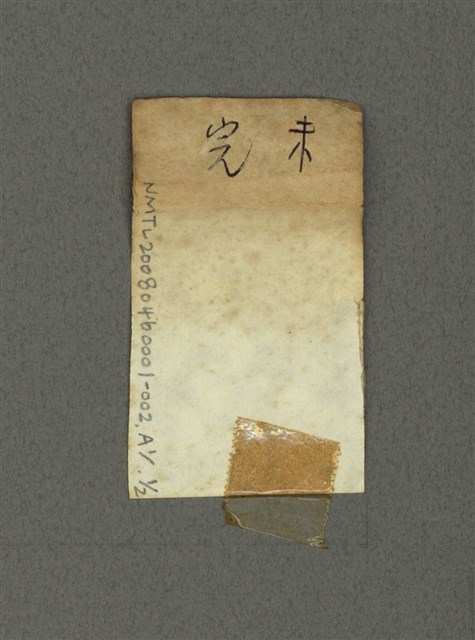 未完
NMTL20080460001-002, A